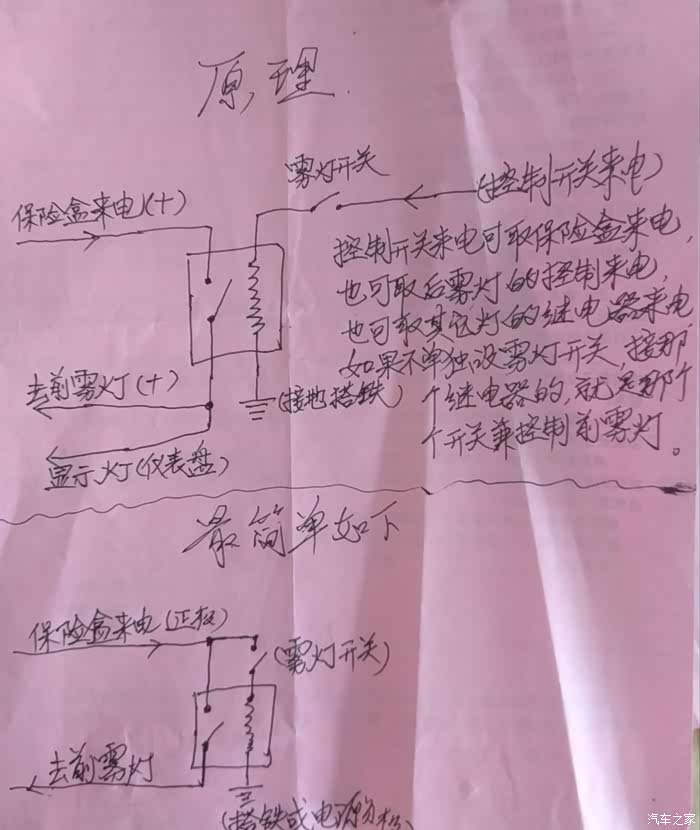 原理
雾灯开关
(控制开关来电)
保险盒来电(+)
控制开关来电可取保险盒来电,
也可取后雾灯的控制来电,
也可取其它灯的继电器来电
如果不单独设雾灯开关,接那
个继电器的,就是那个
个开关兼控制前雾灯。
去前雾灯(+)
(接地搭铁)
显示灯(仪表盘)
最简单如下
保险盒来电(正极)
(雾灯开关)
去前雾灯
(搭铁或电源负极)
汽车之家